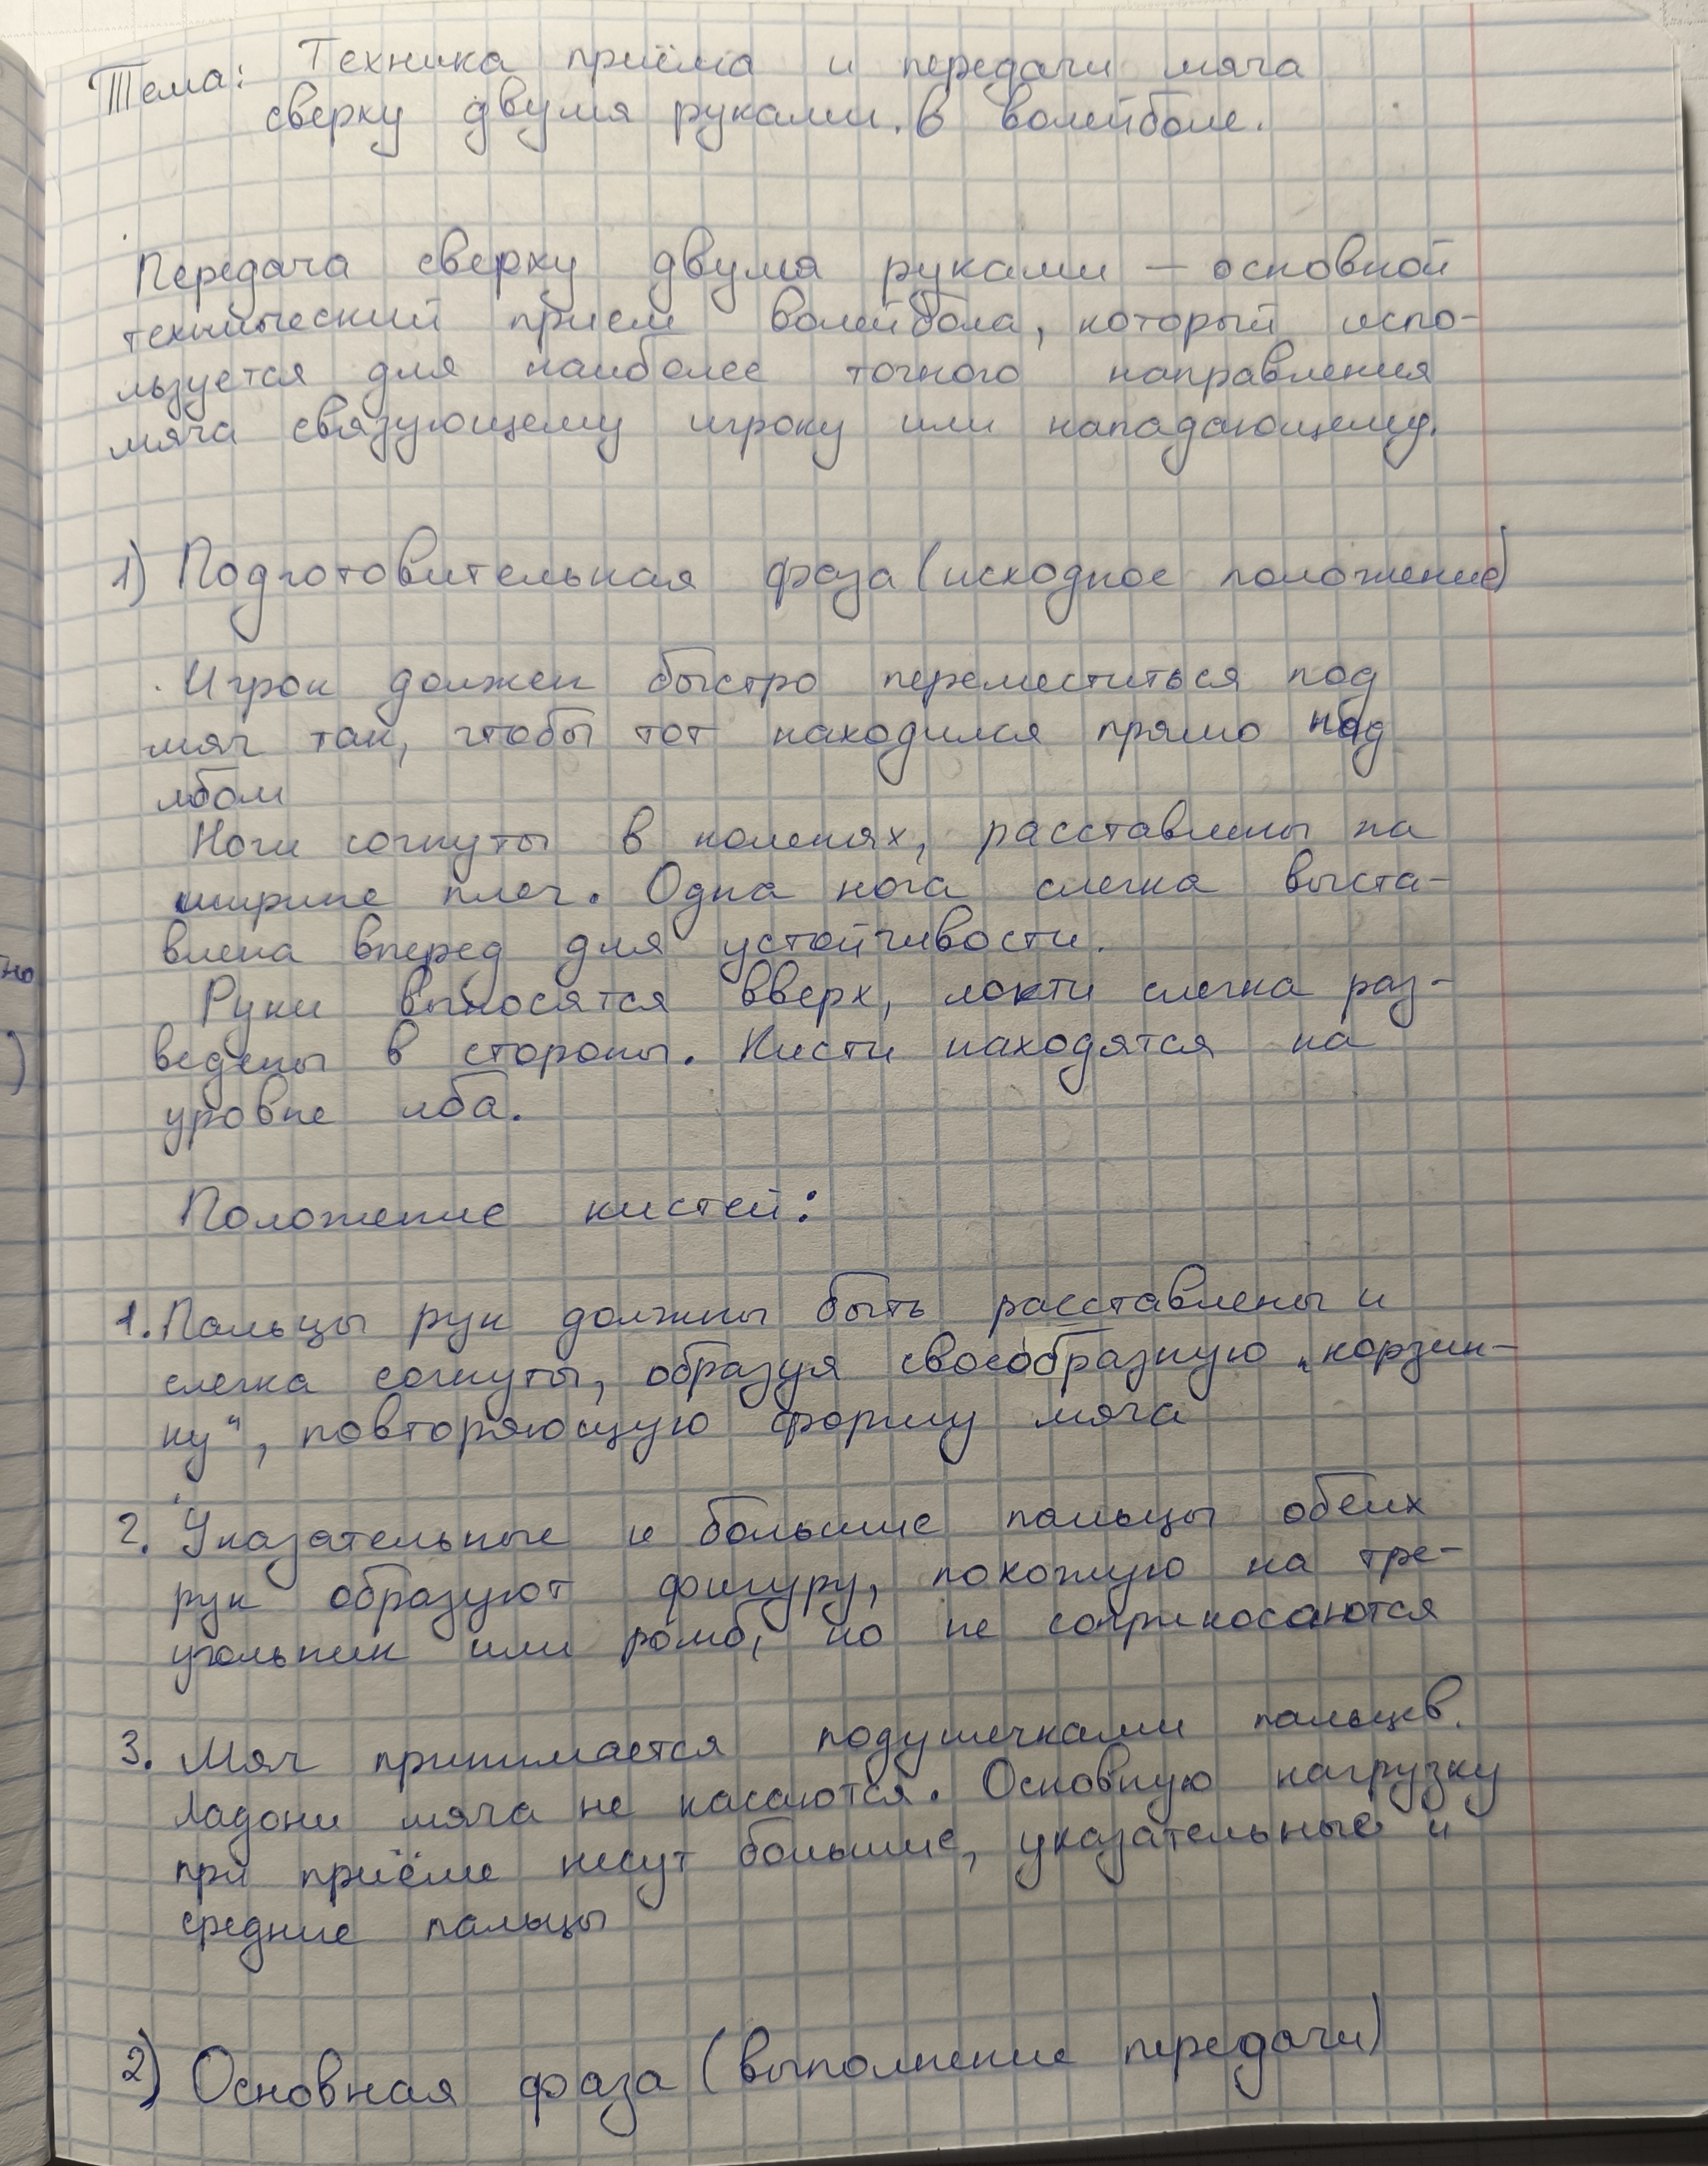 Тема: Техника приёма и передачи мяча
сверху двумя руками. в волейболе.
Передача сверху двумя руками — основной
технический прием волейбола, который испо-
льзуется для наиболее точного направления
мяча связующему игроку или нападающему.
1) Подготовительная фаза (исходное положение)
Игрок должен быстро переместиться под
мяч так, чтобы тот находился прямо над
лбом
Ноги согнуты в коленях, расставлены на
ширине плеч. Одна нога слегка выста-
влена вперед для устойчивости.
Руки выносятся вверх, локти слегка раз-
ведены в стороны. Кисти находятся на
уровне лба.
Положение кистей:
1. Пальцы рук должны быть расставлены и
слегка согнуты, образуя своеобразную „корзин-
ку“, повторяющую форму мяча
2. Указательные и большие пальцы обеих
рук образуют фигуру, похожую на тре-
угольник или ромб, но не соприкосаются
3. Мяч принимается подушечками пальцев.
Ладони мяча не касаются. Основную нагрузку
при приёме несут большие, указательные и
средние пальцы
2) Основная фаза (выполнение передачи)
но
)